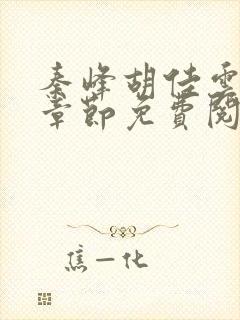 秦峰胡佳雲
章節免費閱
焦一化